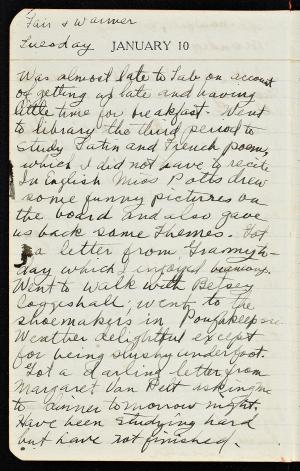 Fair & Warmer
Tuesday JANUARY 10
Was almost late to Lab on account
of getting up late and having
little time for breakfast. Went
to library the third period to
study Latin and French poem,
which I did not have to recite
In English Miss Potts drew
some funny pictures on
the board and also gave
us back some Themes. Got
a letter from Granny to-
day which I enjoyed
Went to walk with Betsey
Coggeshall; went to the
shoemakers in Poughkeepsie
Weather delightful except
for being slushy underfoot.
Got a darling letter from
Margaret Van asking me
to dinner tomorrow night.
Have been studying hard
but have not finished.